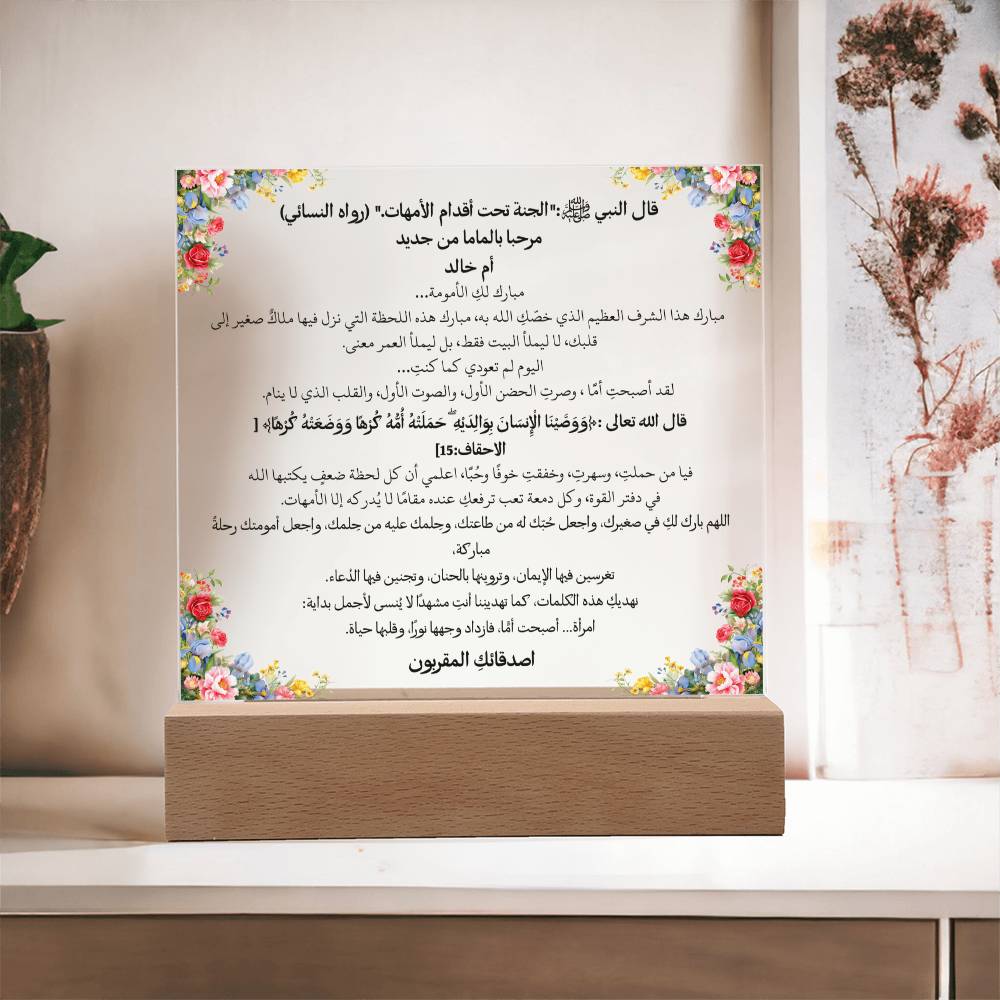 قال النبي ﷺ:" الجنة تحت أقدام الأمهات." (رواه النسائي)
مرحبا بالماما من جديد
أم خالد
مبارك لكِ الأمومة...
مبارك هذا الشرف العظيم الذي خصّكِ الله به، مبارك هذه اللحظة التي نزل فيها ملاكٌ صغير إلى
قلبك، لا ليملأ البيت فقط، بل ليملأ العمر معنى.
اليوم لم تعودي كما كنتِ...
لقد أصبحتِ أمًّا ، وصرتِ الحضن الأول، والصوت الأول، والقلب الذي لا ينام.
قال الله تعالى :﴿وَوَصَّيْنَا الْإِنسَانَ بِوَالِدَيْهِ ۖ حَمَلَتْهُ أُمُّهُ كُرْهًا وَوَضَعَتْهُ كُرْهًا﴾ [
الاحقاف:15]
فيا من حملتِ، وسهرتِ، وخفقتِ خوفًا وحُبًّا، اعلمي أن كل لحظة ضعفٍ يكتبها الله
في دفتر القوة، وكل دمعة تعب ترفعكِ عنده مقامًا لا يُدركه إلا الأمهات.
اللهم بارك لكِ في صغيرك، واجعل حُبّك له من طاعتك، وحِلمك عليه من حِلمك، واجعل أمومتك رحلةً
مباركة،
تغرسين فيها الإيمان، وتروينها بالحنان، وتجنين فيها الدُعاء.
نهديكِ هذه الكلمات، كما تهديننا أنتِ مشهدًا لا يُنسى لأجمل بداية:
امرأة... أصبحت أمًا، فازداد وجهها نورًا، وقلبها حياة.
اصدقائكِ المقربون